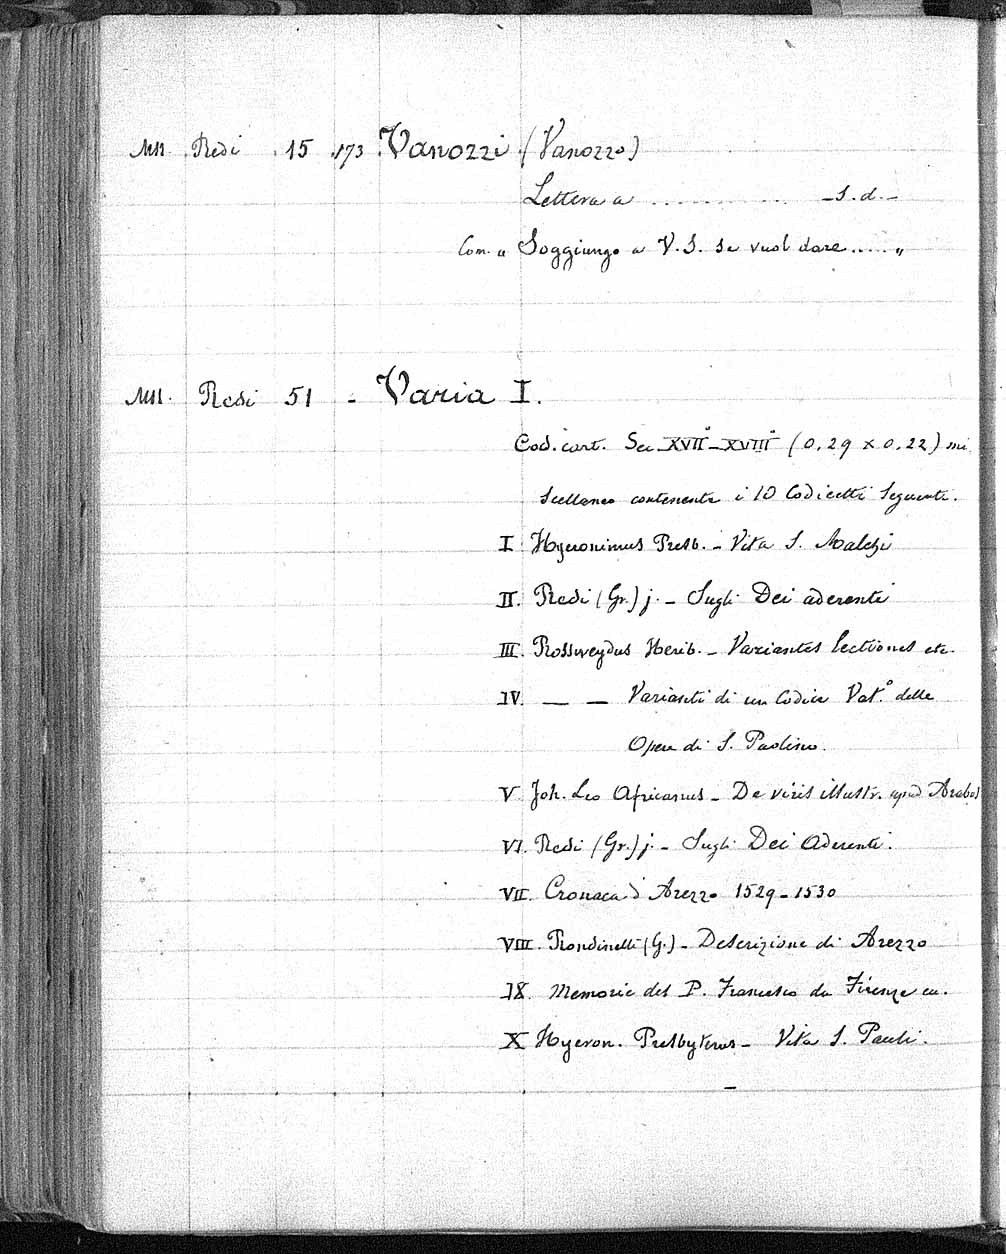 Mss. Redi 15 173 Vanozzi (Vanozzo)
Lettera a ............ - s. d. -
Com. " Soggiungo a V. S. se vuol dare ..... "
Mss. Redi 51 - Varia I.
Cod. cart. Sec XVII°-XVIII° (0,29 x 0,22) mi
scellaneo contenente i 10 Codicetti seguenti.
I Hyeronimus Presb. - Vita S. Malchi
II. Redi (Gr.) j. - Sugli Dei aderenti
III. Rossweydus Herib. - Variantes lectiones etc.
IV. — — Varianti di un Codice Vat.° delle
Opere di S. Paolino.
V Joh. Leo Africanus - De viris illustr. apud Arabos
VI. Redi (Gr.) j. - Sugli Dei Aderenti.
VII. Cronaca d'Arezzo 1529-1530
VIII. Rondinelli (G.) - Descrizione di Arezzo
IX. Memorie del P. Francesco da Firenze cu.
X Hyeron. Presbyterus - Vita S. Pauli.